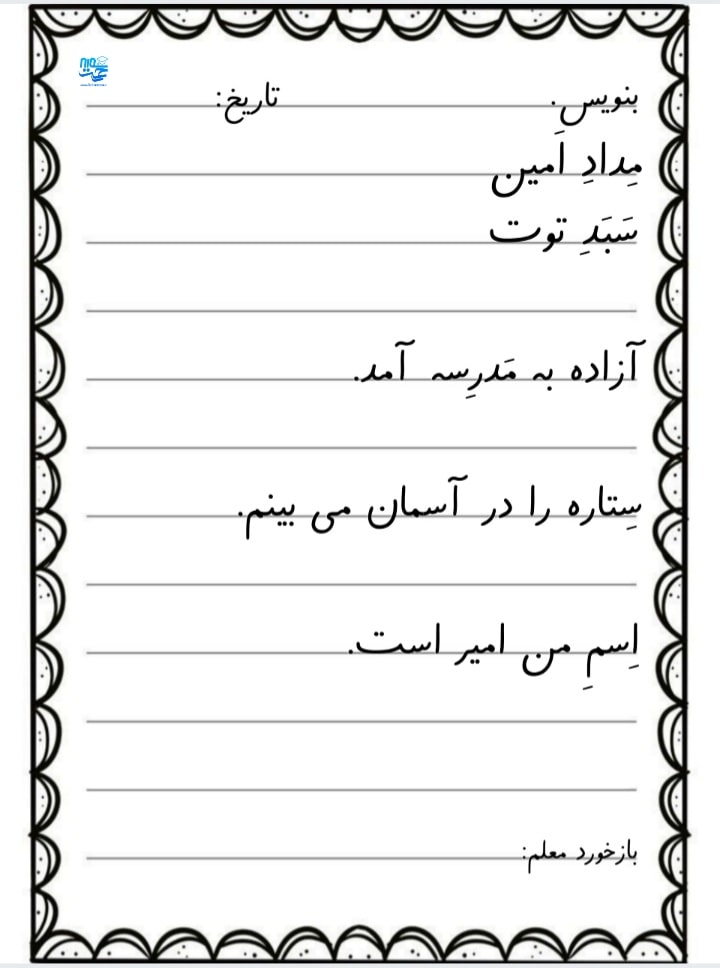 بنویس. تاریخ:
مِدادِ اَمین
سَبَدِ توت
آزاده به مَدرِسه آمد.
سِتاره را در آسمان می بینم.
اِسمِ من امیر است.
بازخورد معلم: